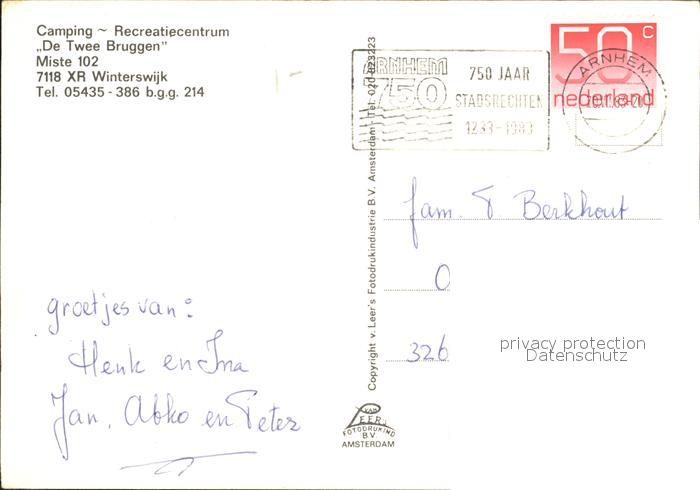 Camping ~ Recreatiecentrum
„De Twee Bruggen”
Miste 102
7118 XR Winterswijk
Tel. 05435 - 386 b.g.g. 214
groetjes van:
Henk en Ina
Jan, Abko en Peter
Copyright v. Leer's Fotodrukindustrie B.V. Amsterdam - Tel. 020-823223
VAN
LEER
FOTODRUKIND
B.V.
AMSTERDAM
ARNHEM
750
750 JAAR
STADSRECHTEN
1233-1983
50 C
nederland
ARNHEM
fam. P. Berkhout
O
326
privacy protection
Datenschutz